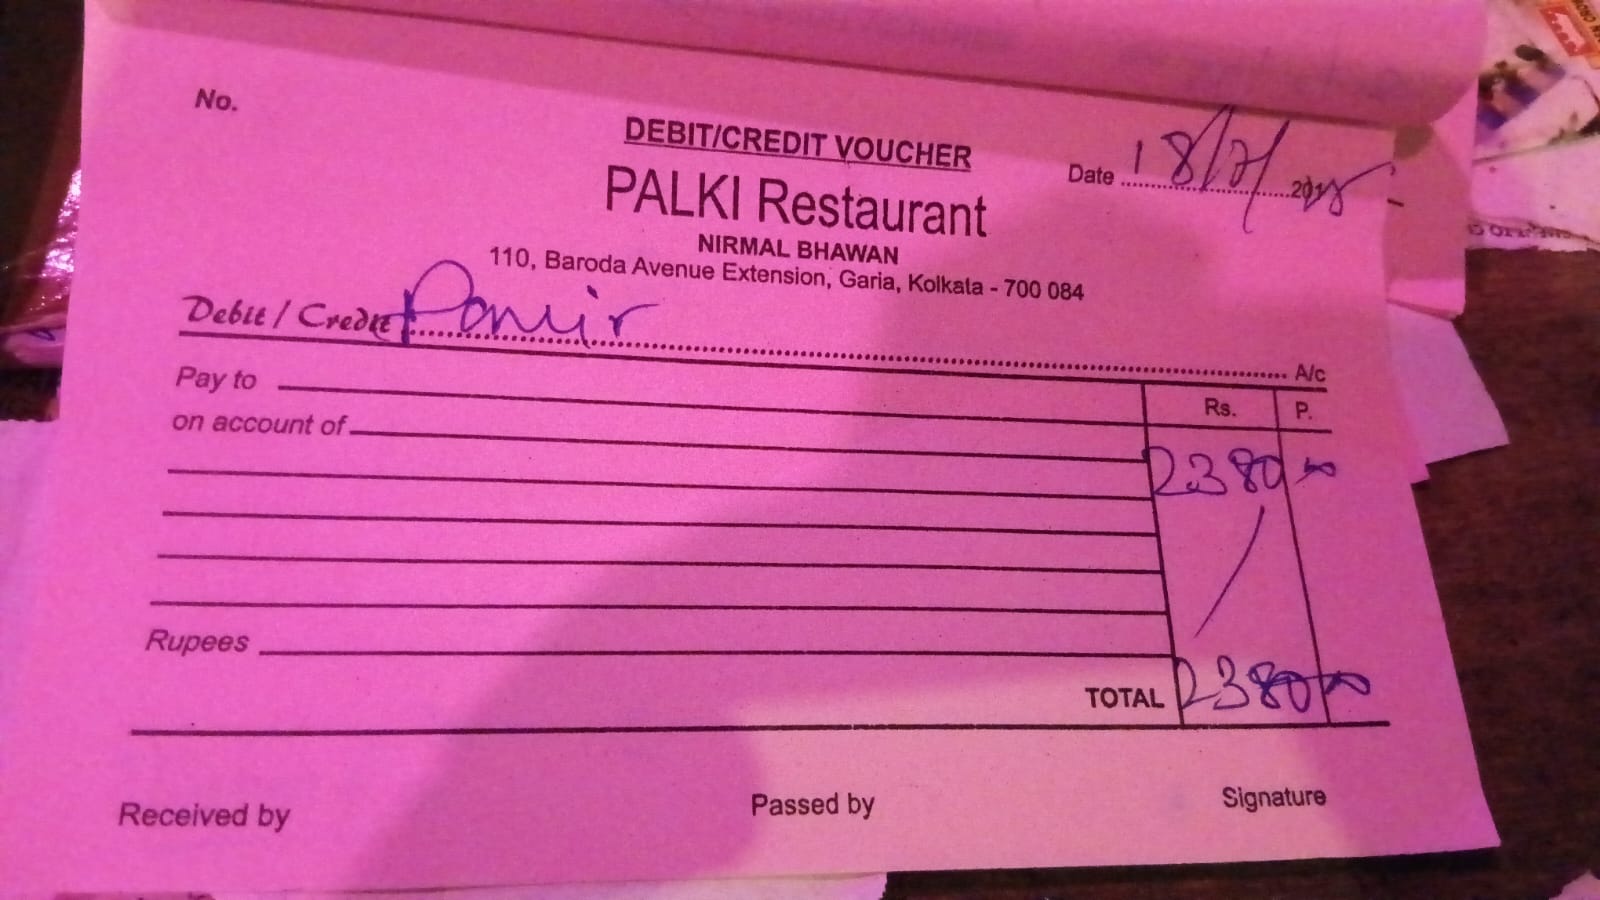 No.
DEBIT/CREDIT VOUCHER
Date 18/7/
PALKI Restaurant
NIRMAL BHAWAN
110, Baroda Avenue Extension, Garia, Kolkata - 700 084
Debit / Credit A/c
Pay to Rs. P.
on account of
2380
Rupees
TOTAL 2380
Received by Passed by Signature